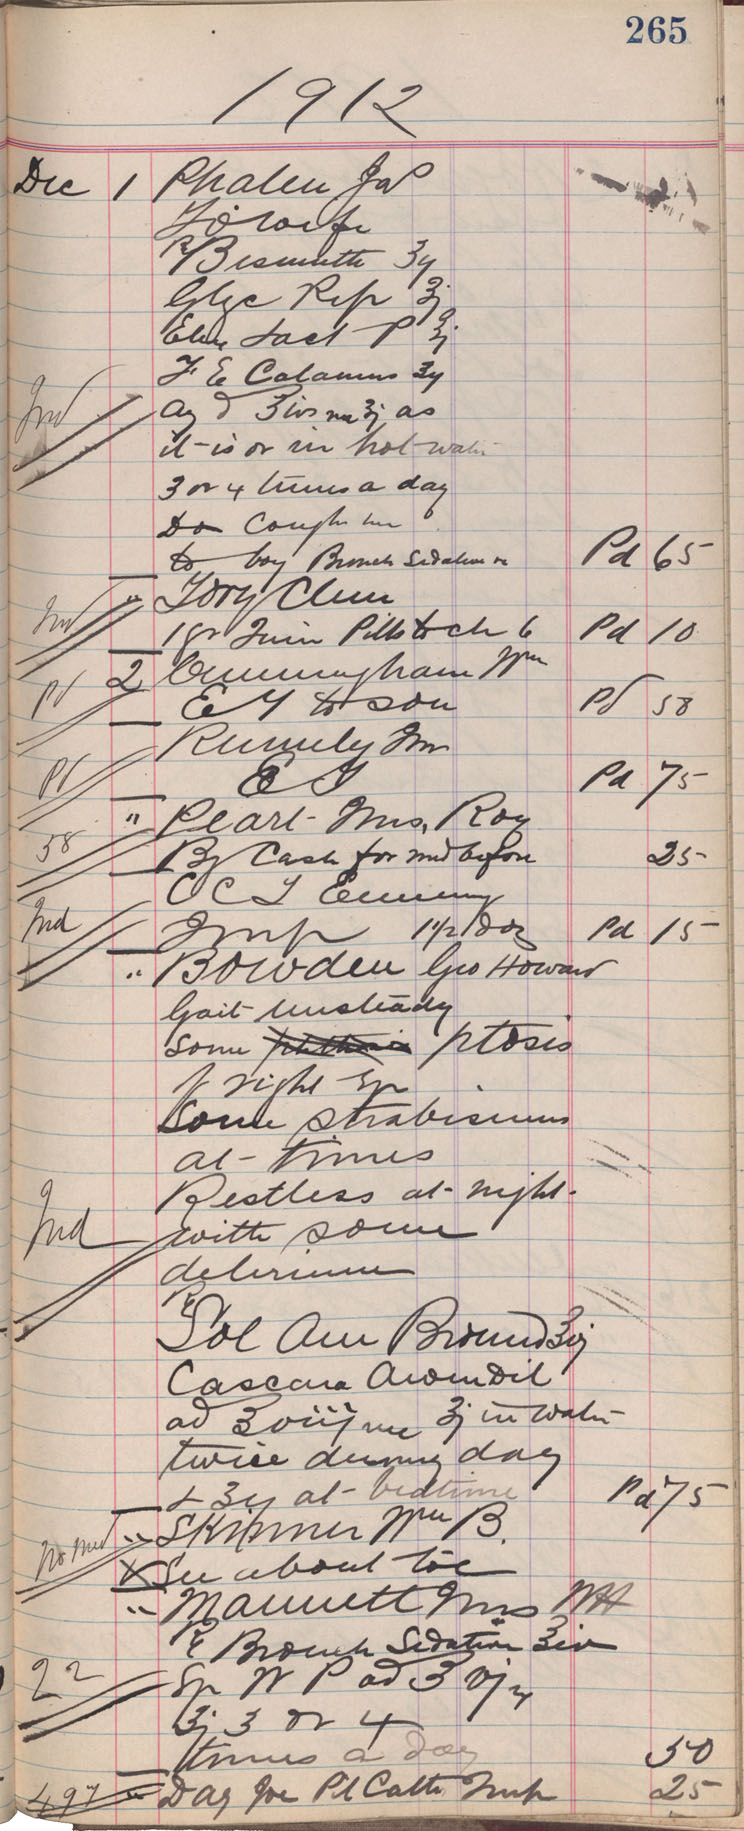 265
1912
Dec 1 Phalen Jas
To wife
Rx Bismuth ʒij
Glyc Pep ℥j
Elix Lact P ℥j
F E Calamus ʒij
aq ad ℥iv ʒj as
it is or in hot water
3 or 4 times a day
Do Cough
to boy Bronch Sedative Pd 65
" Tory Clem
1 gr Quin Pills to ch 6 Pd 10
2 Cunningham Wm
E T to son Pd 58
Pd
Rumely
E T Pd 75
Pd
" Pearl Mrs. Roy
58
By Cash for med before 25
O C T
Ind
1 1/2 Doz Pd 15
" Bowden Geo Howard
Gait unsteady
some ptosis
of right
Some strabismus
at times
Restless at night
Ind with some
delirium
Rx
Sol Am Bromid
Cascara Arom Dil
ad ʒj in water
twice during day
& ʒij at bedtime Pd 75
" Skinner Wm B.
No Med
X See about toe
" Mannett Mrs WH
Rx Bronch Sedative ℥iv
22
Sp W P ad
ʒj 3 or 4
times a day 50
497 " Day Joe Pl Cath 25